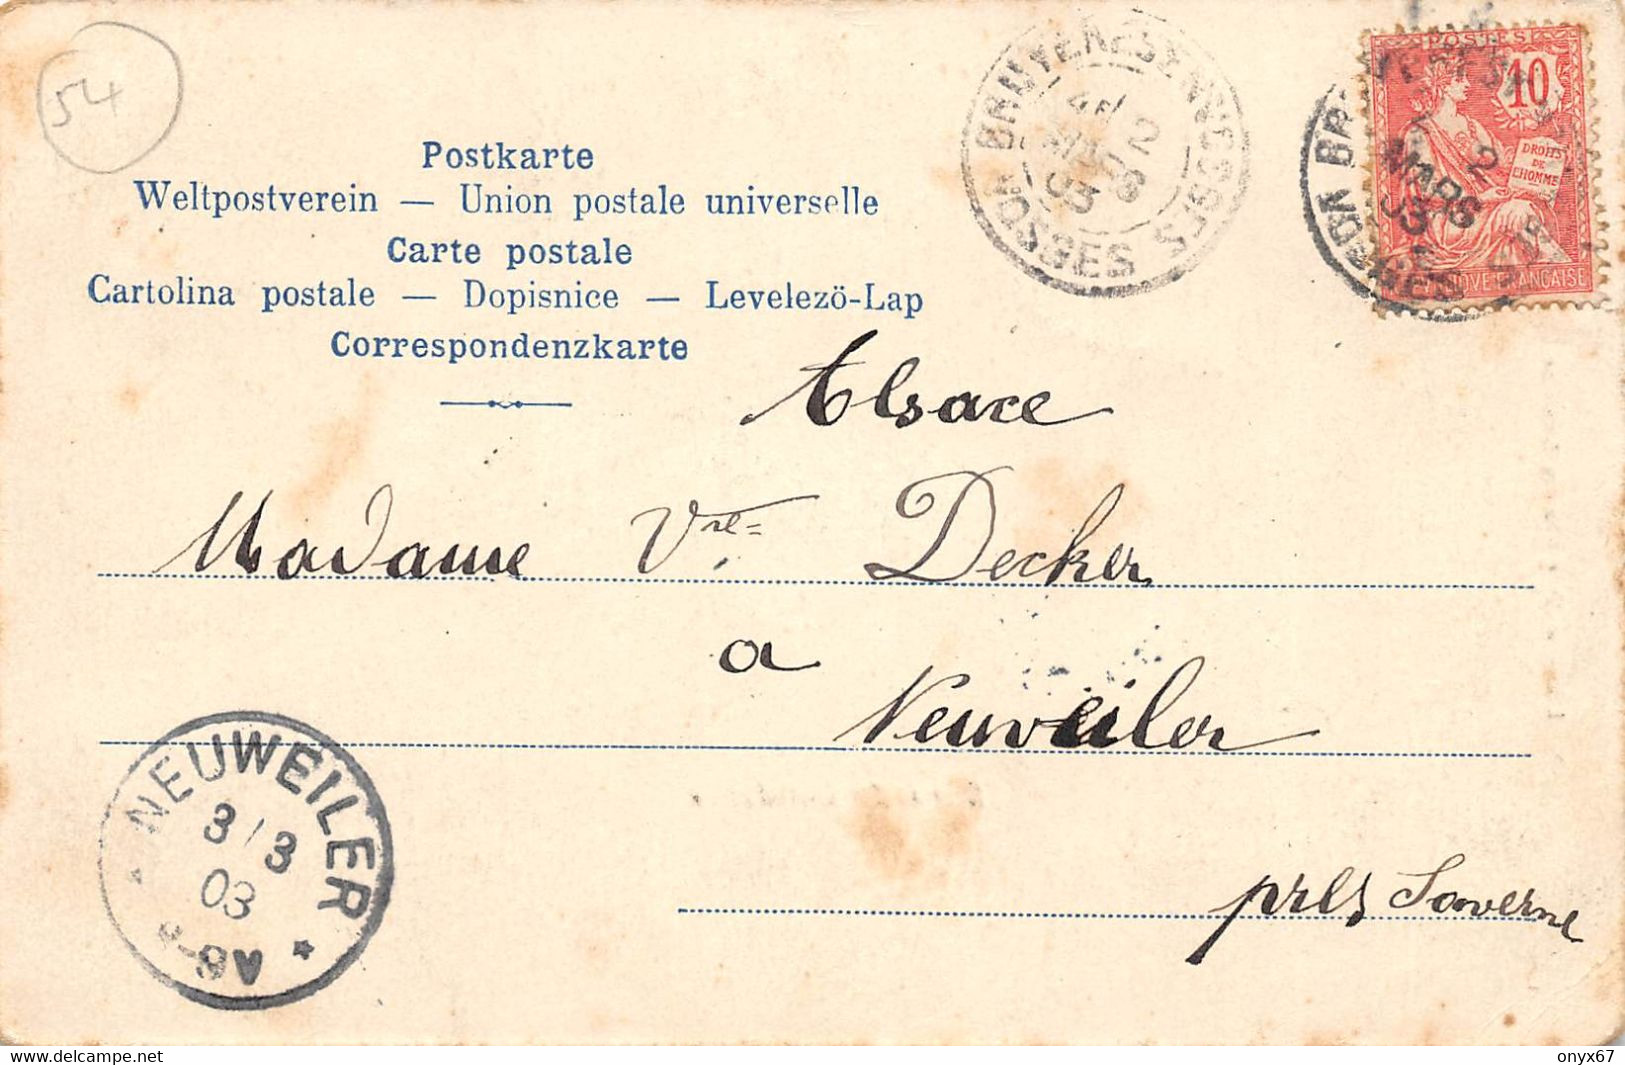 54
Postkarte
Weltpostverein — Union postale universelle
Carte postale
Cartolina postale — Dopisnice — Levelezö-Lap
Correspondenzkarte
BRUYERES EN VOSGES
2
MARS
03
VOSGES
POSTES
10
DROITS
DE
L'HOMME
2
MARS
03
FRANÇAISE
Alsace
Madame Vve Decker
a
Neuweiler
près Saverne
NEUWEILER
3/3
03
8-9V
delcampe.net
onyx67